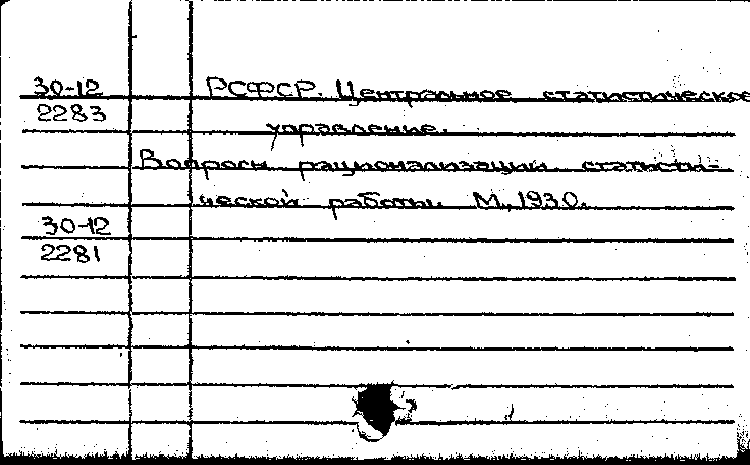 30-12 РСФСР. Центральное статистическое
2283
управление.
Вопросы рационализации статисти-
ческой работы. М., 1930.
30-12
2281